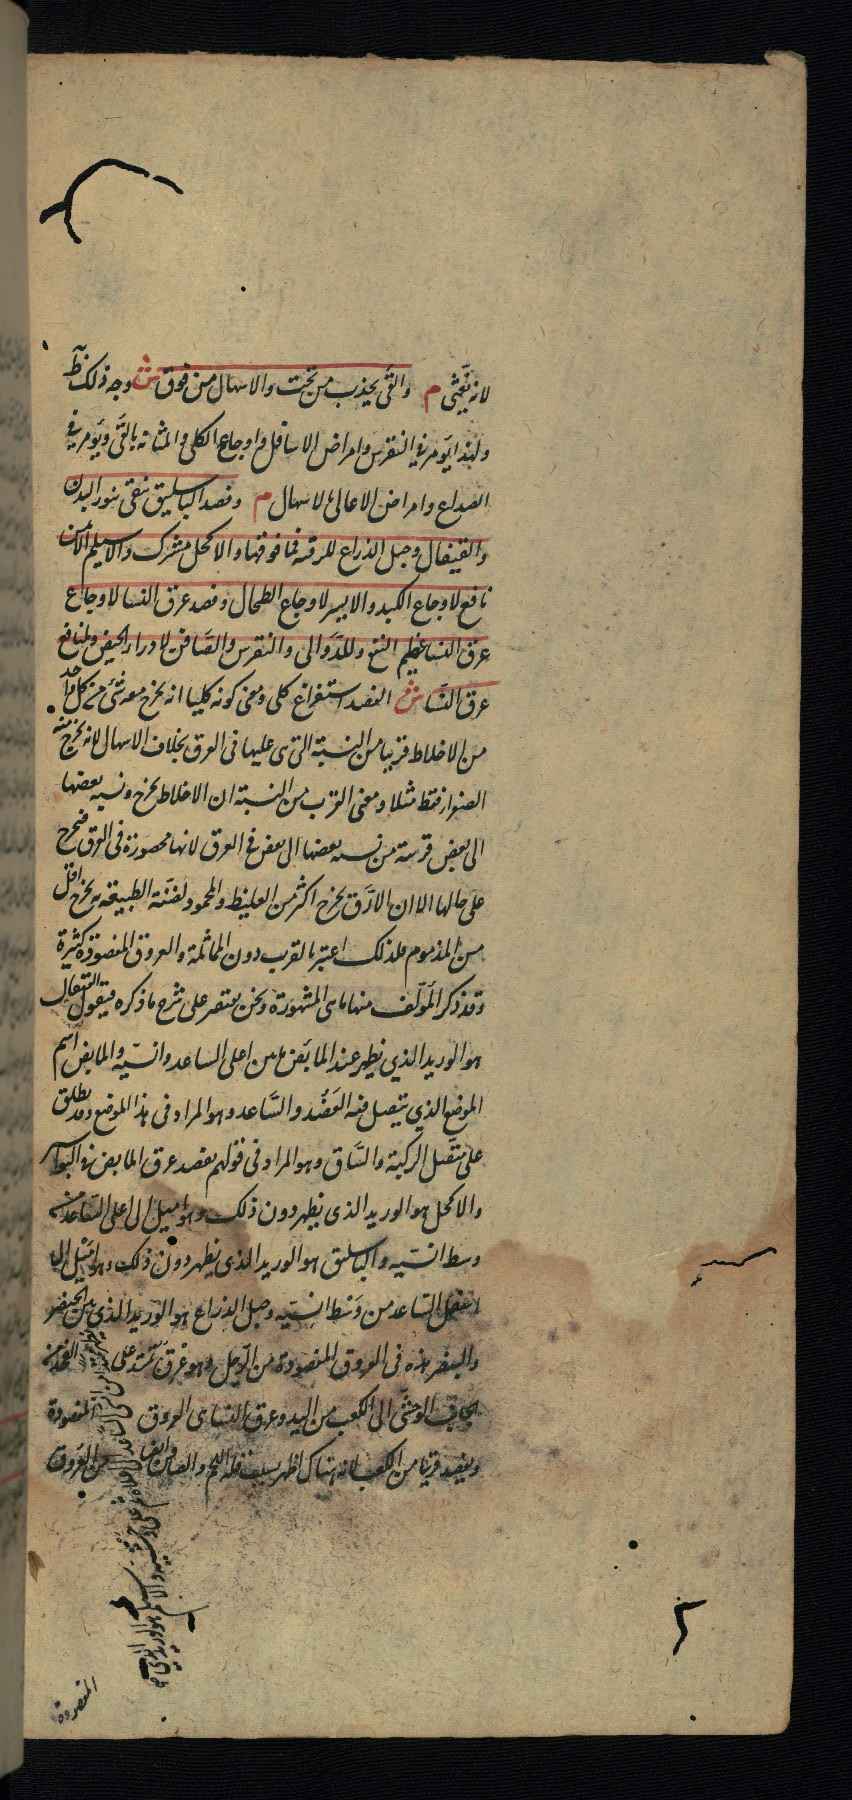 لانه يغثى م والقى يجذب من تحت والاسهال من فوق ش وجه ذلك ظ
ولهذا يومر فى النقرس وامراض الاسافل واوجاع الكلى والمثانه بالقى ويومر فى
الصداع وامراض الاعالى بالاسهال م وفصد الباسليق ينقى تنور البدن
والقيفال وحبل الذراع للرقبه فما فوقها والاكحل مشترك والاسيلم الايمن
نافع لاوجاع الكبد والايسر لاوجاع الطحال وفصد عرق النسا لاوجاع
عرق النسا عظيم النفع وللدوالى والنقرس والصافن لادرار الحيض ولمنافع
عرق النسا ش الفصد استفراغ كلى ومعنى كونه كليا انه يخرج معه شئ من كل واحد
من الاخلاط قريبا من النسبة التى هى عليها فى العرق بخلاف الاسهال لانه يخرج منه
الصفرا فقط مثلا ومعنى القرب من النسبة ان الاخلاط يخرج ونسبه بعضها
الى بعض قريبة من نسبه بعضها الى بعض فى العرق لانها محصورة فى العرق فيخرج
على حالها الا ان الارق يخرج اكثر من الغليظ والمحمود لضنة الطبيعة به يخرج اقل
من المذموم فلذلك اعتبر بالقرب دون المماثلة والعروق المفصودة كثيرة
وقد ذكر المولف منها ما هى المشهورة ونحن نقتصر على شرح ما ذكره فيقول القيفال
هو الوريد الذي يظهر عند المابض من اعلى الساعد وانسيه والمابض اسم
الموضع الذي يتصل فيه العضد والساعد وهو المراد فى هذا الموضع وقد يطلق
على متصل الركبة والساق وهو المراد فى قولهم يفصد عرق المابض فى البواسير
والاكحل هو الوريد الذى يظهر دون ذلك وهو اميل الى اعلى الساعد من
وسط انسيه والباسليق هو الوريد الذى يظهر دون ذلك وهو اميل الى
اسفل الساعد من وسط انسيه وحبل الذراع هو الوريد الذي بين الخنصر
والبنصر هذه فى العروق المفصودة من الرجل وهو عرق يمتد على الفخذ من
الجانب الوحشى الى الكعب من اليد وعرق النسا هى العروق المفصودة
ويفصد قريبا من الكعب لانه هناك اظهر بسبب قلة اللحم والصافن ايضا من العروق
المفصودة